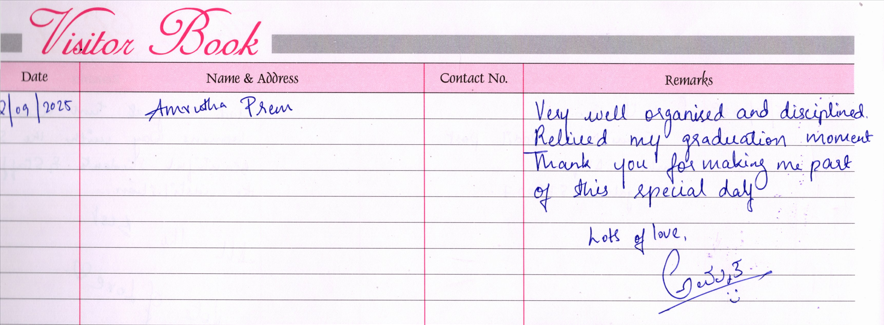 Visitor Book
Date Name & Address Contact No. Remarks
2/09/2025 Amrutha Prem Very well organised and disciplined.
Relived my graduation moment
Thank you for making me part
of this special day
Lots of love,